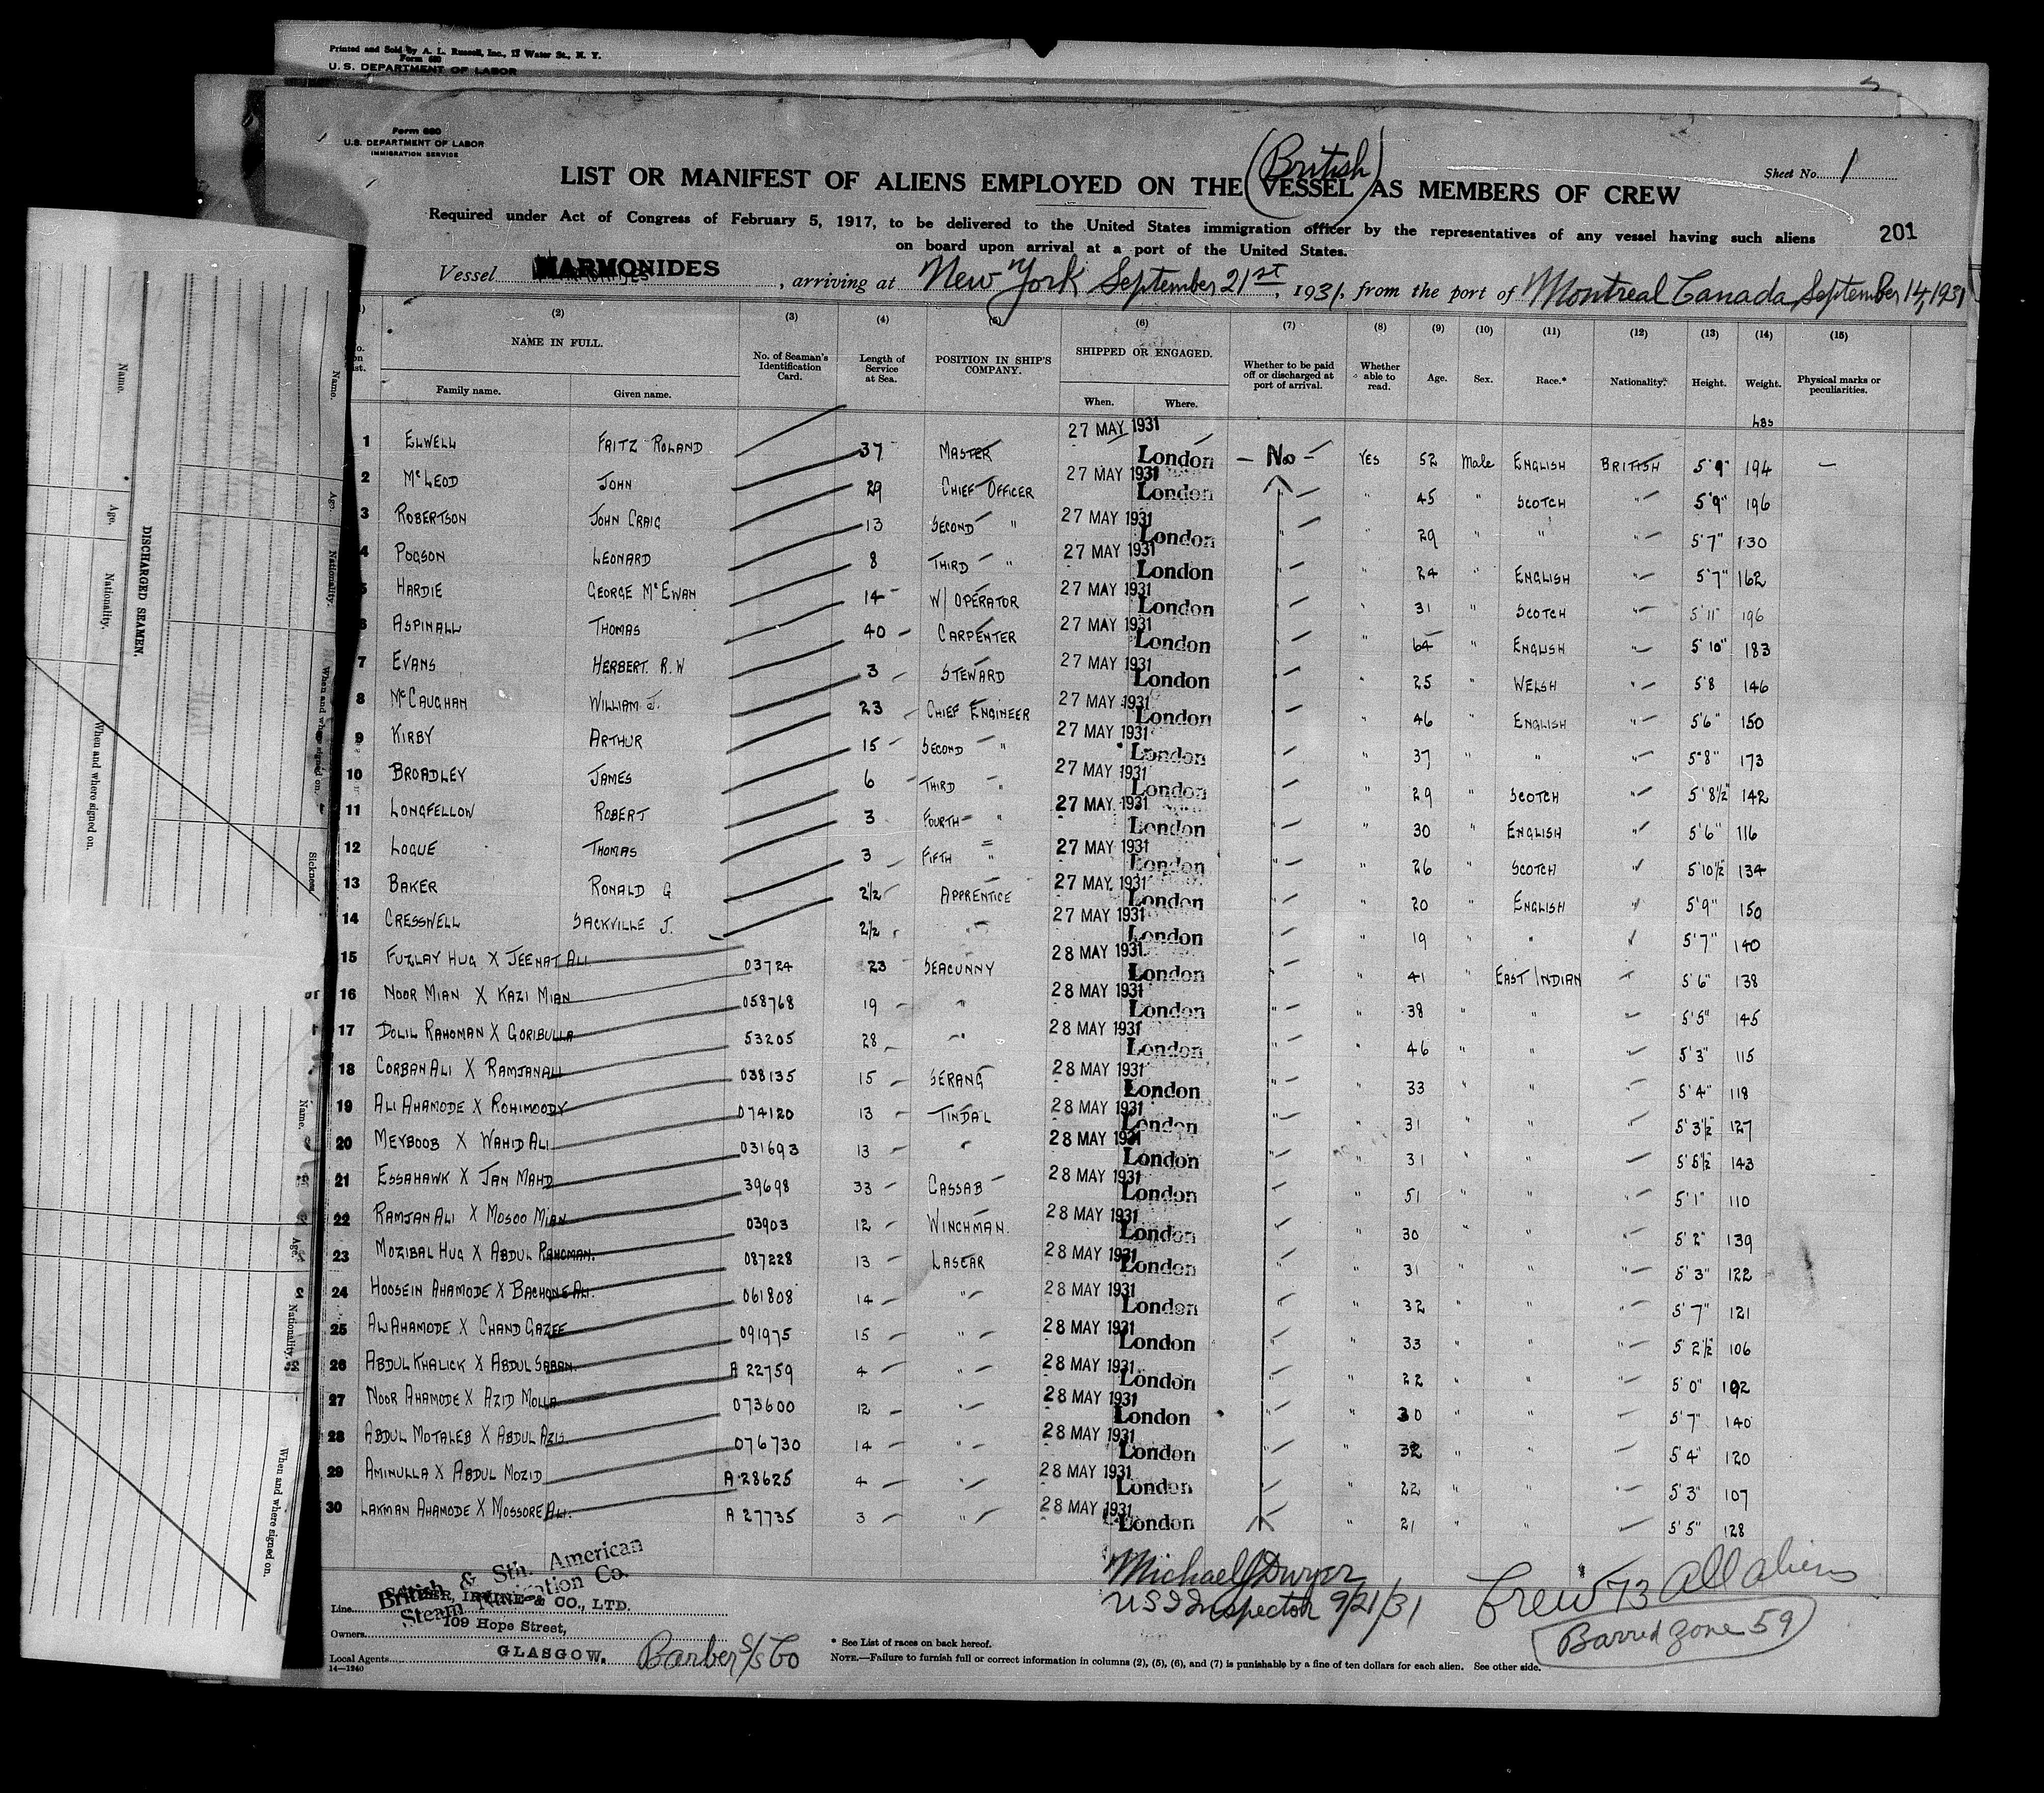 Printed and Sold by A. L. Russell, Inc., 15 Water St., N. Y.
Form 680
U. S. DEPARTMENT OF LABOR
Form 680
U.S. DEPARTMENT OF LABOR
IMMIGRATION SERVICE
Sheet No. 1
(British)
LIST OR MANIFEST OF ALIENS EMPLOYED ON THE VESSEL AS MEMBERS OF CREW
Required under Act of Congress of February 5, 1917, to be delivered to the United States immigration officer by the representatives of any vessel having such aliens
on board upon arrival at a port of the United States.
201
Vessel MARMONIDES, arriving at New York September 21st, 1931, from the port of Montreal Canada September 14, 1931
(2) (3) (4) (5) (6) (7) (8) (9) (10) (11) (12) (13) (14) (15)
NAME IN FULL. No. of Seaman's Identification Card. Length of Service at Sea. POSITION IN SHIP'S COMPANY. SHIPPED OR ENGAGED. Whether to be paid off or discharged at port of arrival. Whether able to read. Age. Sex. Race.* Nationality. Height. Weight. Physical marks or peculiarities.
Family name. Given name. When. Where.
lbs
1 ELWELL FRITZ ROLAND 37 MASTER 27 MAY 1931 London — No — YES 52 Male ENGLISH BRITISH 5'9" 194 —
2 McLEOD JOHN 29 CHIEF OFFICER 27 MAY 1931 London " " 45 " SCOTCH " 5'9" 196
3 ROBERTSON JOHN CRAIG 13 SECOND " 27 MAY 1931 London " " 29 " " " 5'7" 130
4 POGSON LEONARD 8 THIRD " 27 MAY 1931 London " " 24 " ENGLISH " 5'7" 162
5 HARDIE GEORGE McEWAN 14 W/OPERATOR 27 MAY 1931 London " " 31 " SCOTCH " 5'11" 196
6 ASPINALL THOMAS 40 CARPENTER 27 MAY 1931 London " " 64 " ENGLISH " 5'10" 183
7 EVANS HERBERT. R.W 3 STEWARD 27 MAY 1931 London " " 25 " WELSH " 5'8 146
8 McCAUGHAN WILLIAM J. 23 CHIEF ENGINEER 27 MAY 1931 London " " 46 " ENGLISH " 5'6" 150
9 KIRBY ARTHUR 15 SECOND " 27 MAY 1931 London " " 37 " " " 5'8" 173
10 BROADLEY JAMES 6 THIRD " 27 MAY 1931 London " " 29 " SCOTCH " 5'8½" 142
11 LONGFELLOW ROBERT 3 FOURTH " 27 MAY 1931 London " " 30 " ENGLISH " 5'6" 116
12 LOGUE THOMAS 3 FIFTH " 27 MAY 1931 London " " 26 " SCOTCH " 5'10½ 134
13 BAKER RONALD G 2½ APPRENTICE 27 MAY 1931 London " " 20 " ENGLISH " 5'9" 150
14 CRESSWELL SACKVILLE J. 2½ " 27 MAY 1931 London " " 19 " " " 5'7" 140
15 FUZLAY HUG X JEENAT ALI 03724 23 SEACUNNY 28 MAY 1931 London " " 41 " EAST INDIAN " 5'6" 138
16 NOOR MIAN X KAZI MIAN 058768 19 " 28 MAY 1931 London " " 38 " " " 5'5" 145
17 DOLIL RAHOMAN X GORIBULLA 53205 28 " 28 MAY 1931 London " " 46 " " " 5'3" 115
18 CORBAN ALI X RAMJANALI 038135 15 SERANG 28 MAY 1931 London " " 33 " " " 5'4" 118
19 ALI AHAMODE X ROHIMOODY 074120 13 TINDAL 28 MAY 1931 London " " 31 " " " 5'3½ 127
20 MEYBOOB X WAHID ALI 031693 13 " 28 MAY 1931 London " " 31 " " " 5'5½" 143
21 ESSAHAWK X JAN MAHD 39698 33 CASSAB 28 MAY 1931 London " " 51 " " " 5'1" 110
22 RAMJAN ALI X MOSOO MIAN 03903 12 WINCHMAN. 28 MAY 1931 London " " 30 " " " 5'2" 139
23 MOZIBAL HUG X ABDUL RAHOMAN. 087228 13 LASCAR 28 MAY 1931 London " " 31 " " " 5'3" 122
24 HOOSEIN AHAMODE X BACHONE ALI. 061808 14 " 28 MAY 1931 London " " 32 " " " 5'7" 121
25 ALI AHAMODE X CHAND GAZEE 091975 15 " 28 MAY 1931 London " " 33 " " " 5'2½" 106
26 ABDUL KHALICK X ABDUL SABAN. A 22759 4 " 28 MAY 1931 London " " 22 " " " 5'0" 102
27 NOOR AHAMODE X AZID MOLLA 073600 12 " 28 MAY 1931 London " " 30 " " " 5'7" 140
28 ABDUL MOTALEB X ABDUL AZIS 076730 14 " 28 MAY 1931 London " " 32 " " " 5'4" 120
29 AMINULLA X ABDUL MOZID A 28625 4 " 28 MAY 1931 London " " 22 " " " 5'3" 107
30 LAKMAN AHAMODE X MOSSORE ALI. A 27735 3 " 28 MAY 1931 London " " 21 " " " 5'5" 128
British & Sth. American
Steam Navigation Co.
Line
& CO., LTD.
109 Hope Street,
Owners
GLASGOW.
Local Agents Barber S/S Co
14—1240
Michael J Dwyer
US I Inspector 9/21/31
Crew 73 all aliens
Barred zone 59
* See List of races on back hereof.
NOTE.—Failure to furnish full or correct information in columns (2), (5), (6), and (7) is punishable by a fine of ten dollars for each alien. See other side.
DISCHARGED SEAMEN.
Name. Age. Nationality. When and where signed on.
Name. Age. Nationality. When and where signed on. Sickness
Name. Age. Nationality. When and where signed on.